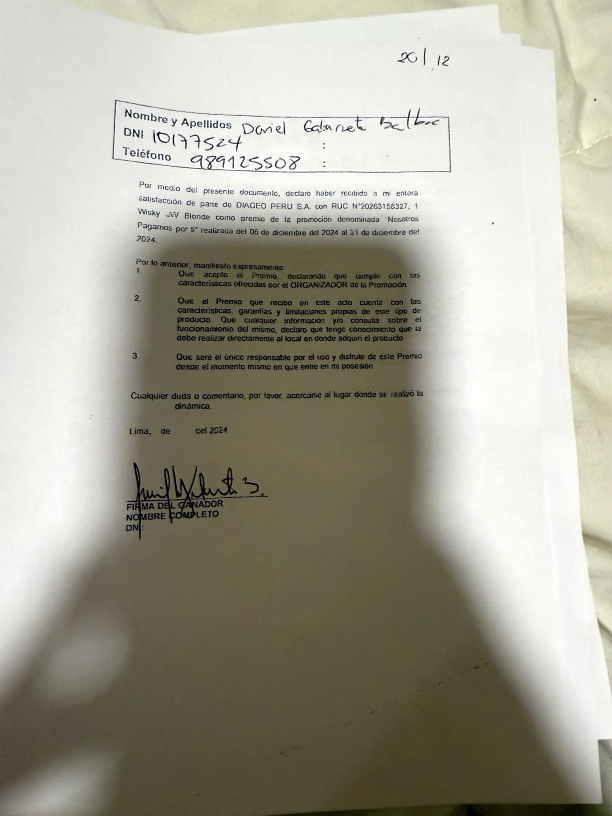 20/12
Nombre y Apellidos Daniel
DNI 10177524 :
Teléfono 989125508 :
Por medio del presente documento, declaro haber recibido a mi entera
satisfacción de parte de DIAGEO PERU S.A. con RUC N°20263158327, 1
Wisky JW Blonde como premio de la promoción denominada "Nosotros
Pagamos por ti" realizada del 06 de diciembre del 2024 al 31 de diciembre del
2024.
Por lo anterior, manifiesto expresamente:
1. Que acepto el Premio, declarando que cumple con las
características ofrecidas por el ORGANIZADOR de la Promoción
2. Que el Premio que recibo en este acto cuenta con las
características, garantías y limitaciones propias de este tipo de
producto. Que cualquier información y/o consulta sobre el
funcionamiento del mismo, declaro que tengo conocimiento que la
debo realizar directamente al local en donde adquirí el producto
3. Que seré el único responsable por el uso y disfrute de este Premio
desde el momento mismo en que entre en mi posesión
Cualquier duda o comentario, por favor, acercarse al lugar donde se realizó la
dinámica.
Lima, de del 2024
FIRMA DEL GANADOR
NOMBRE COMPLETO
DNI: